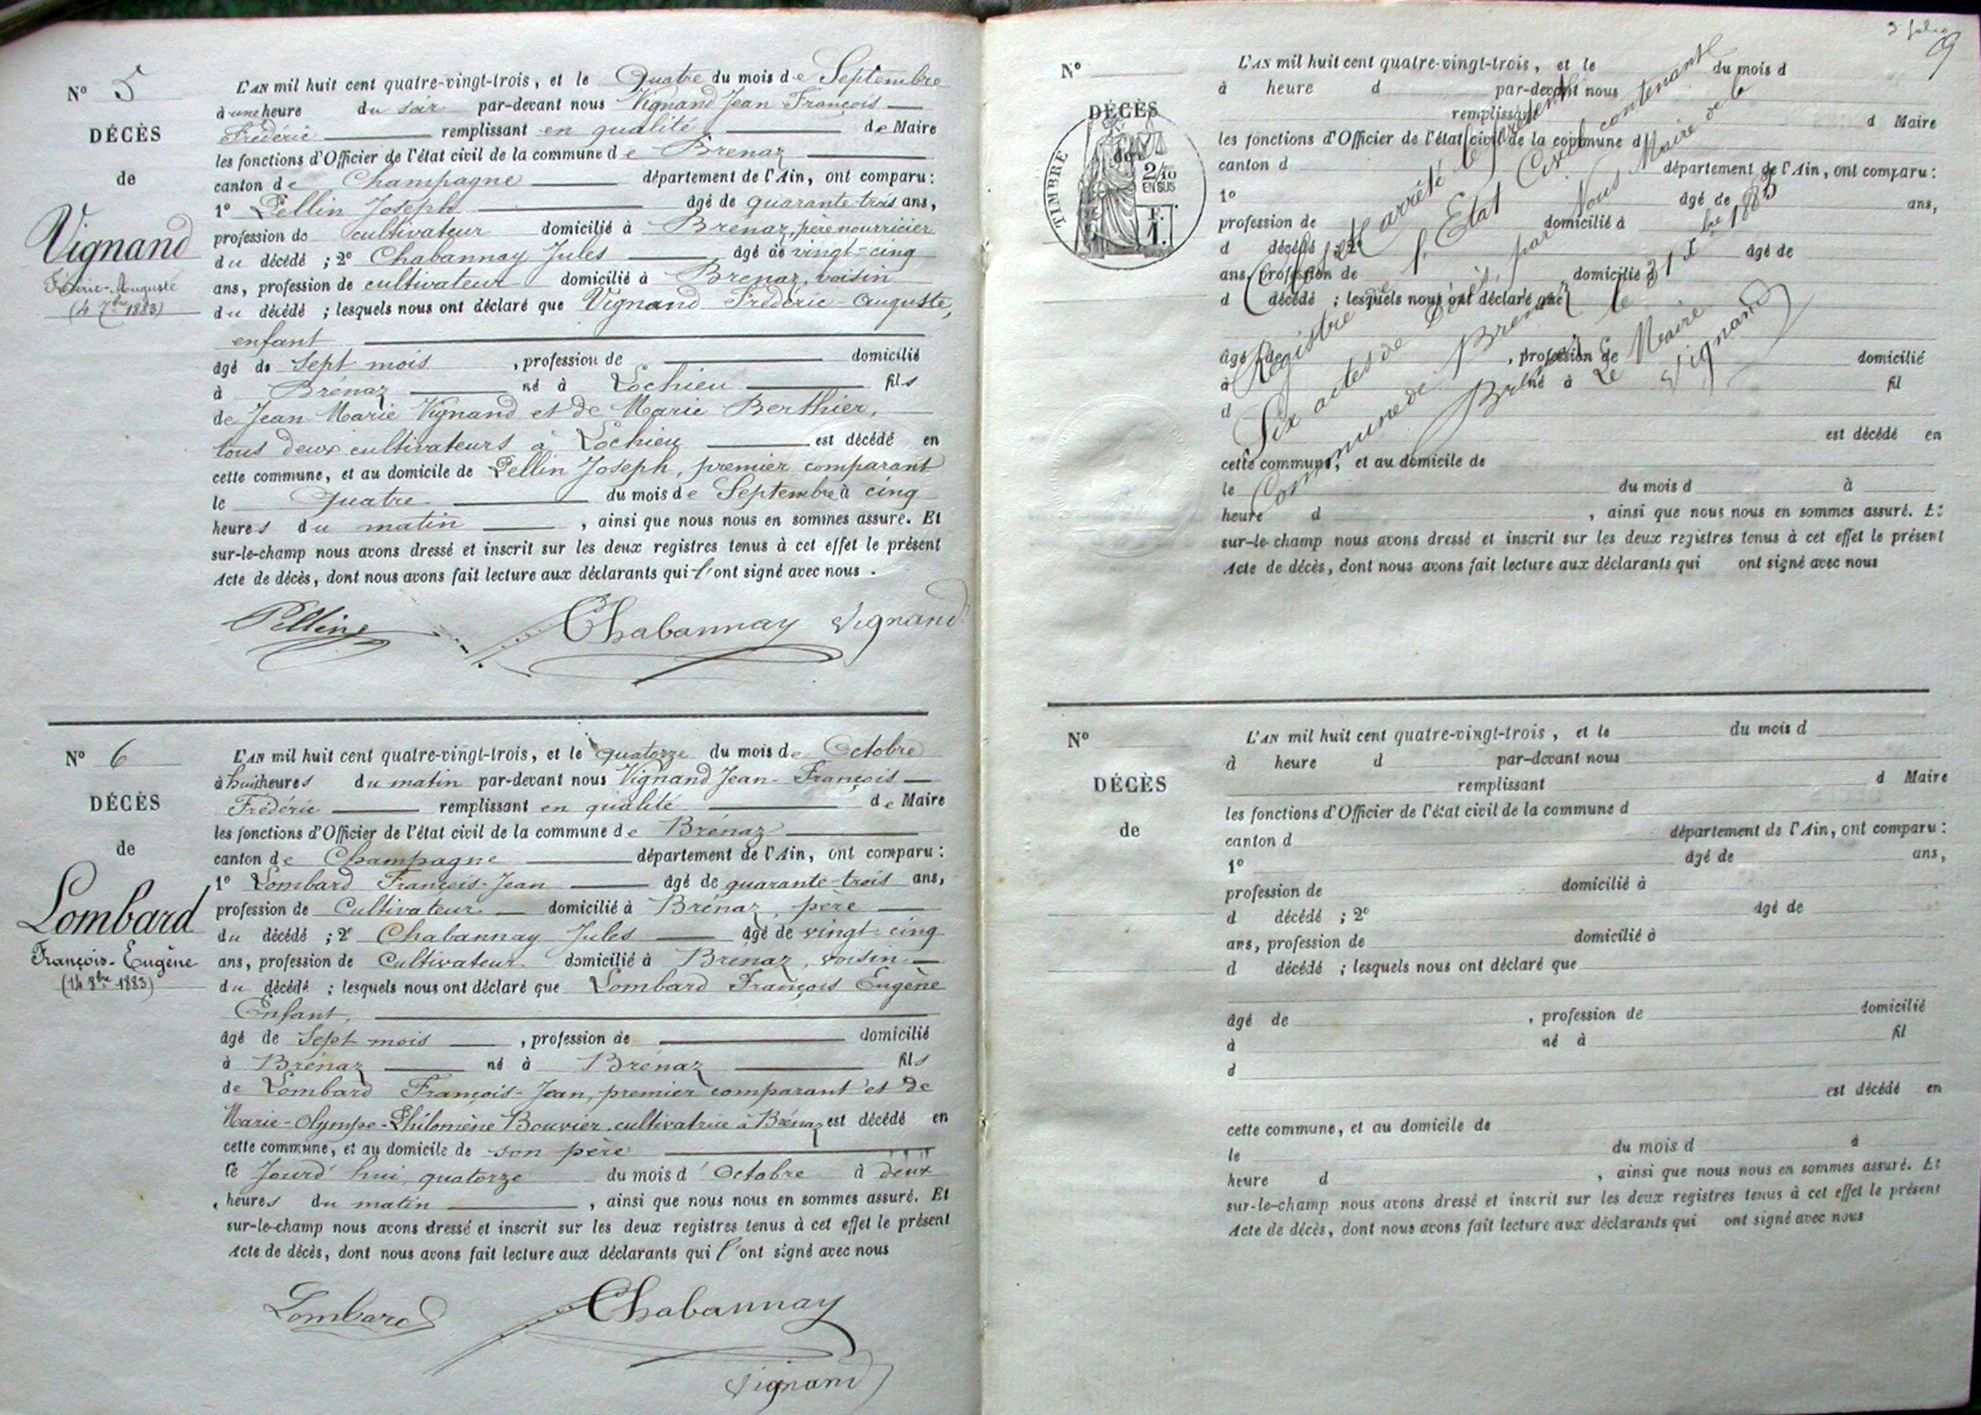 Nº 5
DÉCÈS
de
Vignand
Auguste
(4 7bre 1883)
L'AN mil huit cent quatre-vingt-trois, et le Quatre du mois de Septembre
à une heure du soir par-devant nous Vignand Jean François
Frédéric remplissant en qualité de Maire
les fonctions d'Officier de l'état civil de la commune de Brenaz
canton de Champagne département de l'Ain, ont comparu :
1º Pellin Joseph âgé de quarante trois ans,
profession de cultivateur domicilié à Brenaz, père nourricier
du décédé ; 2º Chabannay Jules âgé de vingt-cinq
ans, profession de cultivateur domicilié à Brenaz, voisin
du décédé ; lesquels nous ont déclaré que Vignand Frédéric-Auguste,
enfant
âgé de Sept mois , profession de domicilié
à Brénaz né à Lochieu fils
de Jean-Marie Vignand et de Marie Berthier,
tous deux cultivateurs à Lochieu est décédé en
cette commune, et au domicile de Pellin Joseph, premier comparant
le Quatre du mois de Septembre à cinq
heures du matin , ainsi que nous nous en sommes assuré. Et
sur-le-champ nous avons dressé et inscrit sur les deux registres tenus à cet effet le présent
Acte de décès, dont nous avons fait lecture aux déclarants qui l'ont signé avec nous .
Pellin Chabannay Vignand
Nº 6
DÉCÈS
de
Lombard
François-Eugène
(14 8bre 1883)
L'AN mil huit cent quatre-vingt-trois, et le quatorze du mois de Octobre
à huit heures du matin par-devant nous Vignand Jean-François
Frédéric remplissant en qualité de Maire
les fonctions d'Officier de l'état civil de la commune de Brénaz
canton de Champagne département de l'Ain, ont comparu :
1º Lombard François-Jean âgé de quarante-trois ans,
profession de Cultivateur domicilié à Brénaz, père
du décédé ; 2º Chabannay Jules âgé de vingt-cinq
ans, profession de Cultivateur domicilié à Brenaz, voisin
du décédé ; lesquels nous ont déclaré que Lombard François Eugène
Enfant,
âgé de Sept mois , profession de domicilié
à Brénaz né à Brénaz fils
de Lombard François-Jean, premier comparant et de
Marie-Olympe-Philomène Bouvier, cultivatrice à Brénaz est décédé en
cette commune, et au domicile de son père
le Jourd'hui quatorze du mois d'Octobre à deux
heures du matin , ainsi que nous nous en sommes assuré. Et
sur-le-champ nous avons dressé et inscrit sur les deux registres tenus à cet effet le présent
Acte de décès, dont nous avons fait lecture aux déclarants qui l'ont signé avec nous
Lombard Chabannay
Vignand
9
Nº
DÉCÈS
de
TIMBRE
2/10
EN SUS
F.
1.
L'AN mil huit cent quatre-vingt-trois, et le du mois d
à heure d par-devant nous
remplissant d Maire
les fonctions d'Officier de l'état civil de la commune d
canton d département de l'Ain, ont comparu :
1º âgé de ans,
profession de domicilié à
d décédé ; 2º âgé de
ans, profession de domicilié à
d décédé ; lesquels nous ont déclaré que
âgé de , profession de domicilié
à né à fil
d
est décédé en
cette commune, et au domicile de
le du mois d à
heure d , ainsi que nous nous en sommes assuré. Et
sur-le-champ nous avons dressé et inscrit sur les deux registres tenus à cet effet le présent
Acte de décès, dont nous avons fait lecture aux déclarants qui ont signé avec nous
arrêté le présent
Registre de l'Etat Civil contenant
Six actes de Décès, par Nous Maire de la
Commune de Brenaz le 31 Xbre 1883
Le Maire
Vignand
Nº
DÉCÈS
de
L'AN mil huit cent quatre-vingt-trois, et le du mois d
à heure d par-devant nous
remplissant d Maire
les fonctions d'Officier de l'état civil de la commune d
canton d département de l'Ain, ont comparu :
1º âgé de ans,
profession de domicilié à
d décédé ; 2º âgé de
ans, profession de domicilié à
d décédé ; lesquels nous ont déclaré que
âgé de , profession de domicilié
à né à fil
d
est décédé en
cette commune, et au domicile de
le du mois d à
heure d , ainsi que nous nous en sommes assuré. Et
sur-le-champ nous avons dressé et inscrit sur les deux registres tenus à cet effet le présent
Acte de décès, dont nous avons fait lecture aux déclarants qui ont signé avec nous